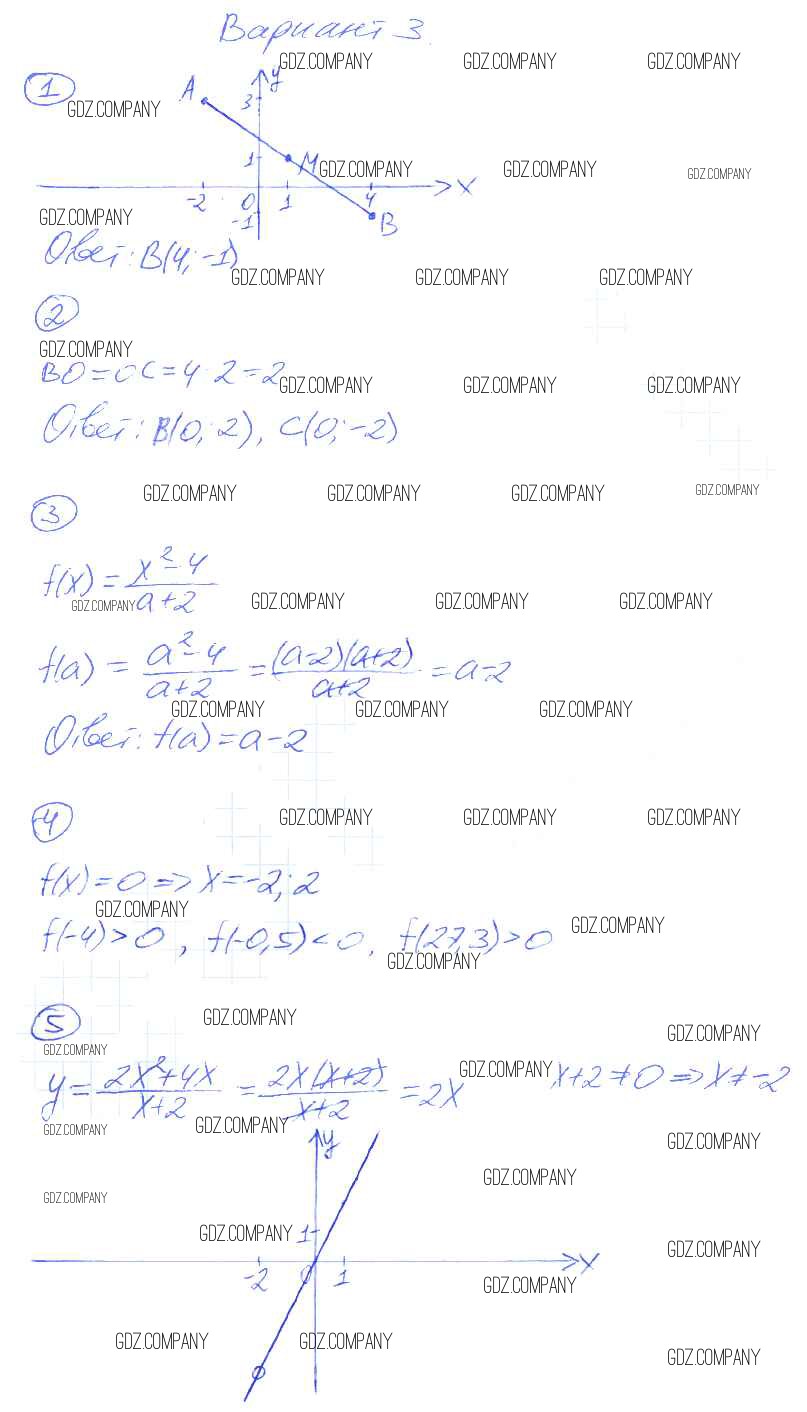 Вариант 3
GDZ.COMPANY GDZ.COMPANY GDZ.COMPANY
1 A 3 y
GDZ.COMPANY
1 M GDZ.COMPANY GDZ.COMPANY GDZ.COMPANY
-2 0 1 4 x
GDZ.COMPANY -1 B
Ответ: B(4; -1)
GDZ.COMPANY GDZ.COMPANY GDZ.COMPANY
2
GDZ.COMPANY
BO = OC = 4 : 2 = 2
GDZ.COMPANY GDZ.COMPANY GDZ.COMPANY
Ответ: B(0; 2), C(0; -2)
GDZ.COMPANY GDZ.COMPANY GDZ.COMPANY GDZ.COMPANY
3
f(x) = (x² - 4)/(a + 2)
GDZ.COMPANY GDZ.COMPANY GDZ.COMPANY GDZ.COMPANY
f(a) = (a² - 4)/(a + 2) = ((a - 2)(a + 2))/(a + 2) = a - 2
GDZ.COMPANY GDZ.COMPANY GDZ.COMPANY
Ответ: f(a) = a - 2
4
GDZ.COMPANY GDZ.COMPANY GDZ.COMPANY
f(x) = 0 => x = -2; 2
GDZ.COMPANY
f(-4) > 0, f(-0,5) < 0, f(27,3) > 0
GDZ.COMPANY
GDZ.COMPANY
5
GDZ.COMPANY GDZ.COMPANY
GDZ.COMPANY
y = (2x² + 4x)/(x + 2) = (2x(x + 2))/(x + 2) = 2x GDZ.COMPANY x + 2 ≠ 0 => x ≠ -2
GDZ.COMPANY GDZ.COMPANY
y GDZ.COMPANY
GDZ.COMPANY
GDZ.COMPANY
GDZ.COMPANY 1
GDZ.COMPANY
-2 0 1 x
GDZ.COMPANY
GDZ.COMPANY GDZ.COMPANY
GDZ.COMPANY